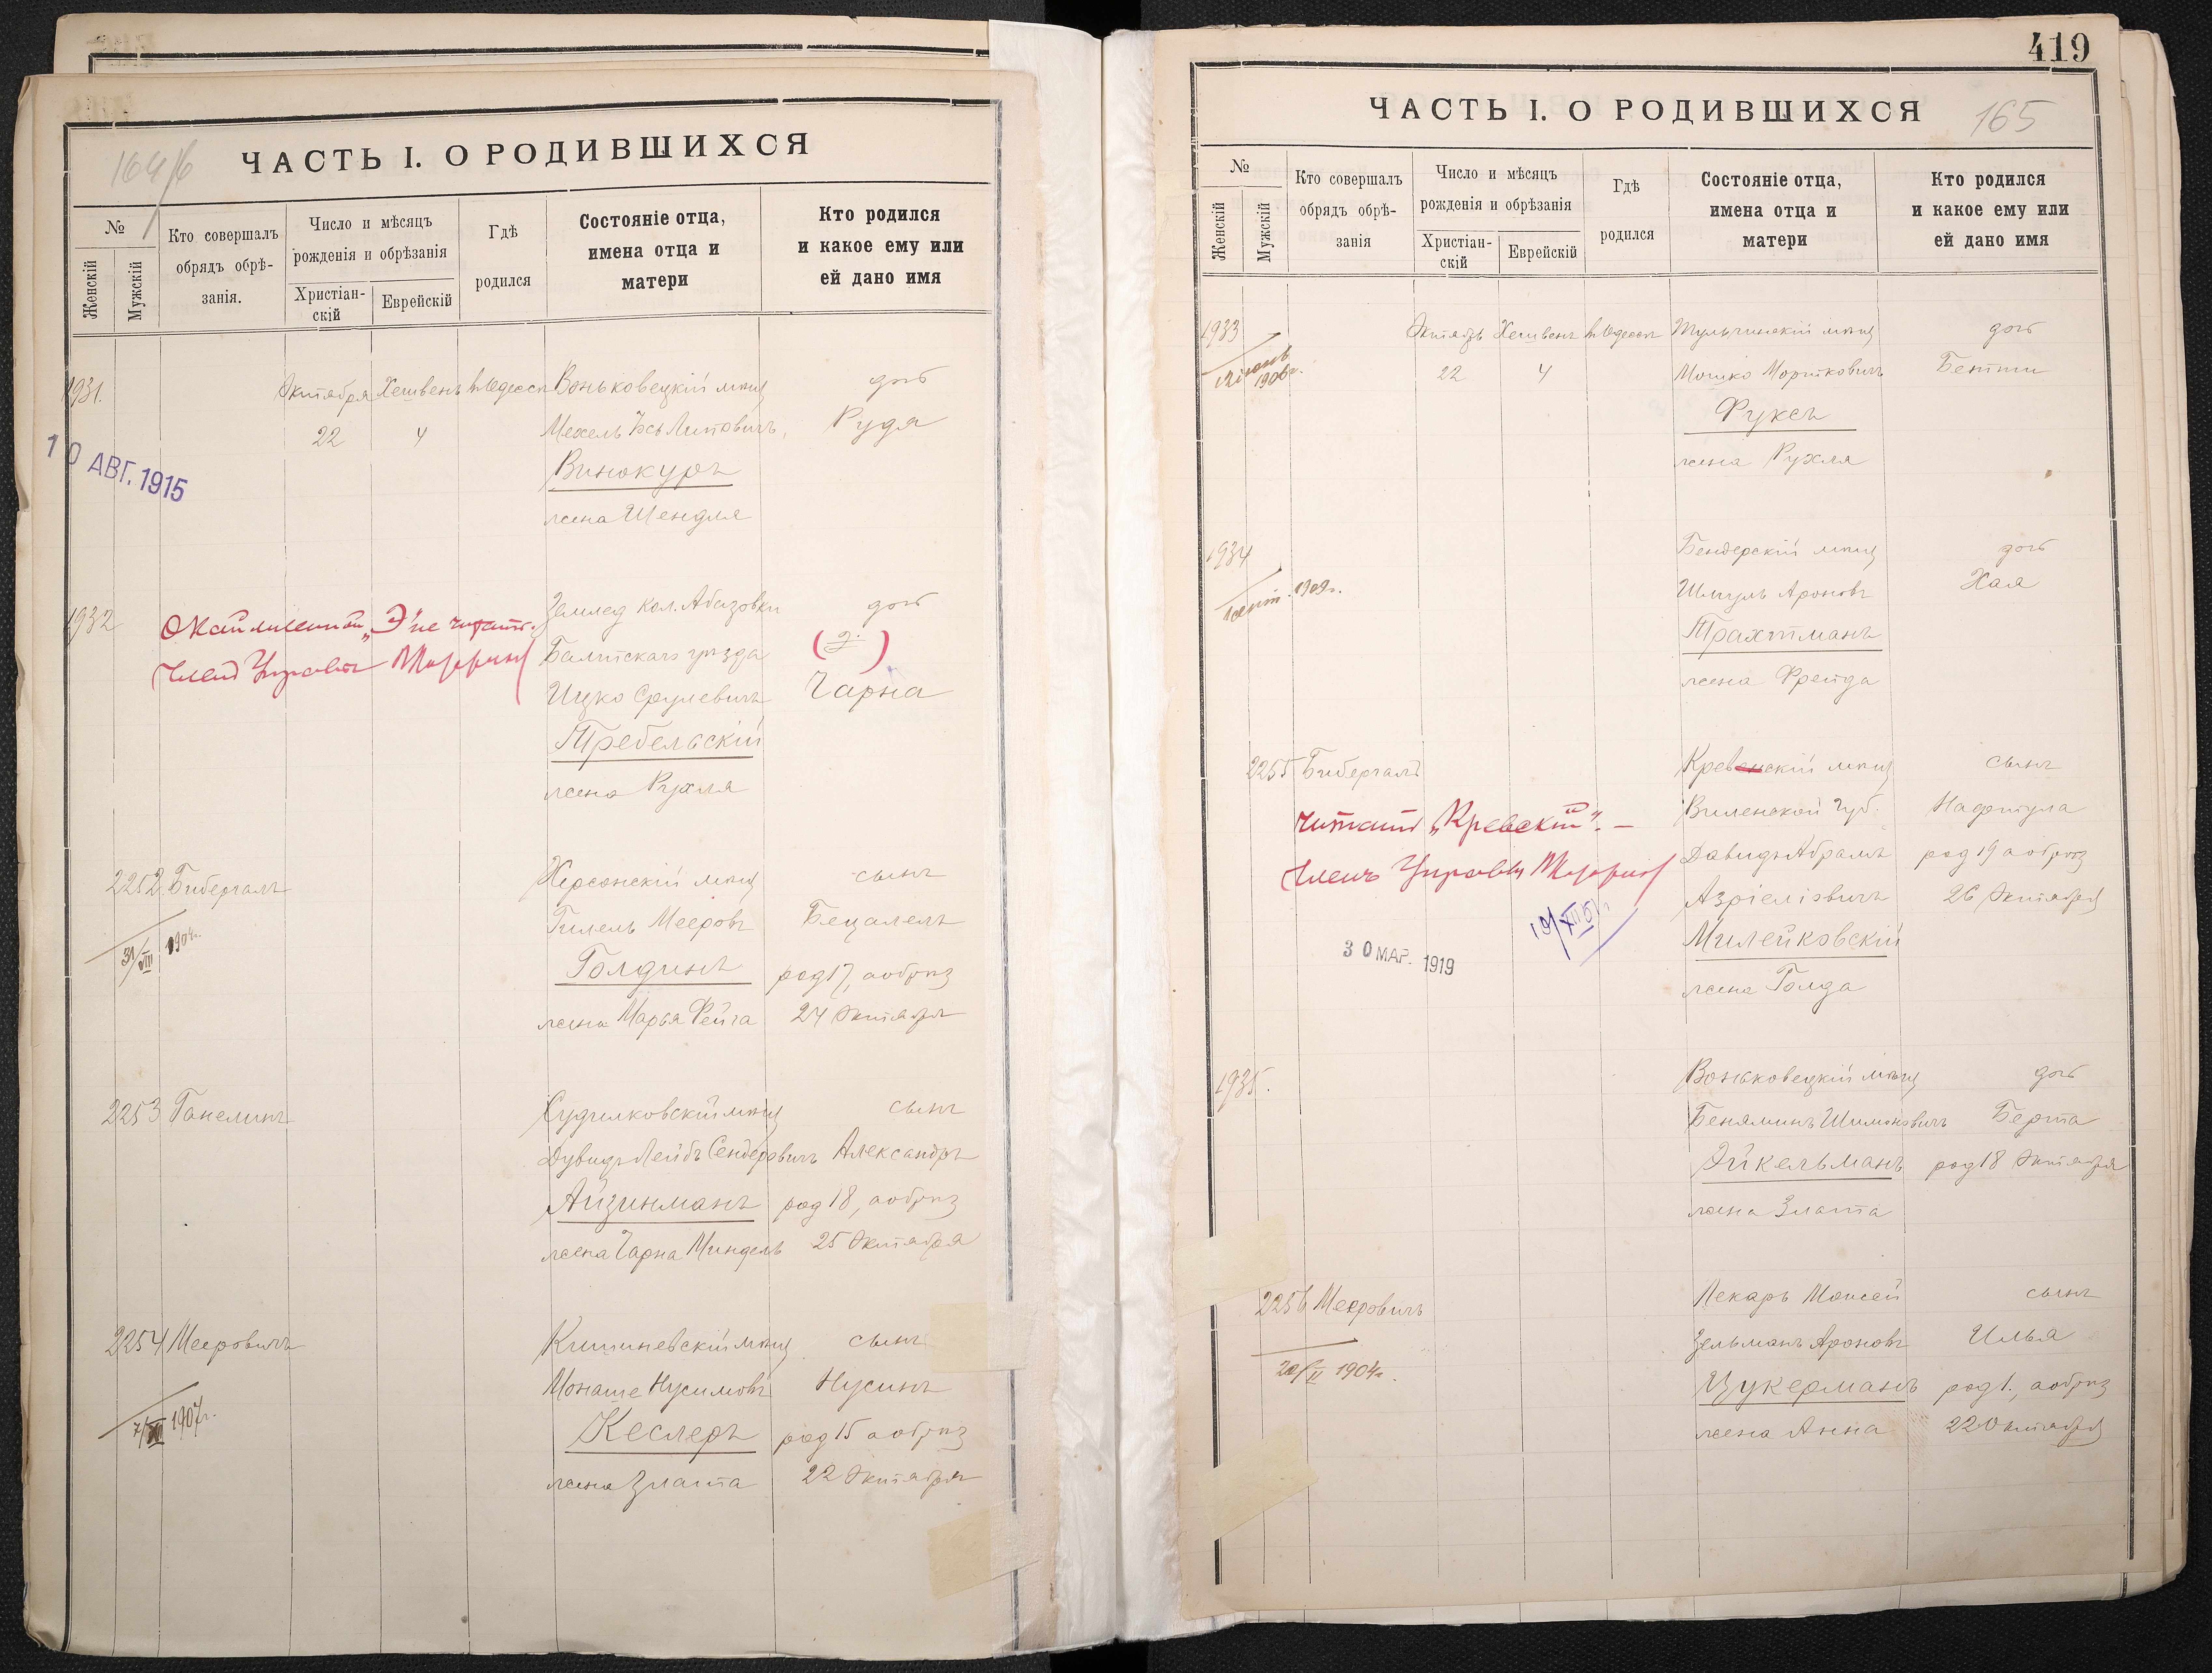 164/б
ЧАСТЬ I. О РОДИВШИХСЯ
№
Женскій
Мужскій
Кто совершалъ обрядъ обрѣ-занія.
Число и мѣсяцъ рожденія и обрѣзанія
Христіан-скій
Еврейскій
Гдѣ родился
Состояніе отца, имена отца и матери
Кто родился и какое ему или ей дано имя
1931. Октября Хешвенъ въ Одессѣ Воньковецкій мѣщ дочь
22 4 Мехель Липовичъ, Рудя
Винокуръ
жена Шендля
10 АВГ. 1915
1932 Землед кол. Абазовки дочь
Балтскаго уѣзда (Э)
Ицко Срулевичъ Чарна
Требельскій
жена Рухля
"Э" не читать.
Членъ Управы
2252 Бибергалъ Херсонскій мѣщ сынъ
Гилель Мееровъ Бецалель
Голдинъ род 17, а обрѣз
жена Марья Фейга 24 Октября
31/VIII 1904г.
2253 Ганелинъ Судилковскій мѣщ сынъ
Дувидъ Лейбъ Сендеровичъ Александръ
Айзинманъ род 18, а обрѣз
жена Чарна Миндель 25 Октября
2254 Мееровичъ Кишиневскій мѣщ сынъ
Монаше Нусимовъ Нусинъ
Кеслеръ род 15 а обрѣз
жена Злата 22 Октября
1907г.
419
ЧАСТЬ I. О РОДИВШИХСЯ
165
№
Женскій
Мужскій
Кто совершалъ обрядъ обрѣ-занія
Число и мѣсяцъ рожденія и обрѣзанія
Христіан-скій
Еврейскій
Гдѣ родился
Состояніе отца, имена отца и матери
Кто родился и какое ему или ей дано имя
1933 Октябрь Хешвенъ въ Одессѣ Тульчинскій мѣщ дочь
22 4 Мошко Мортковичъ Бетти
Фуксъ
жена Рухля
1906г.
1934 Бендерскій мѣщ дочь
Шмуль Ароновъ Хая
Трахтманъ
жена Фрейда
1909г.
2255 Бибергалъ Кревенскій мѣщ сынъ
Виленской губ. Нафтула
Давидъ Абрамъ род 19 а обрѣз
Азріеліовичъ 26 Октября
Милейковскій
жена Голда
Читать "Кревскій". –
Членъ Управы
30 МАР. 1919
1935. Воньковецкій мѣщ дочь
Беняминъ Шимоновичъ Берта
Эйкельманъ род 18 Октября
жена Злата
2256 Мееровичъ Лекарь Моисей сынъ
Зельманъ Ароновъ Илья
Цукерманъ род 1., а обрѣз
жена Анна 22 Октября
20/II 1904г.